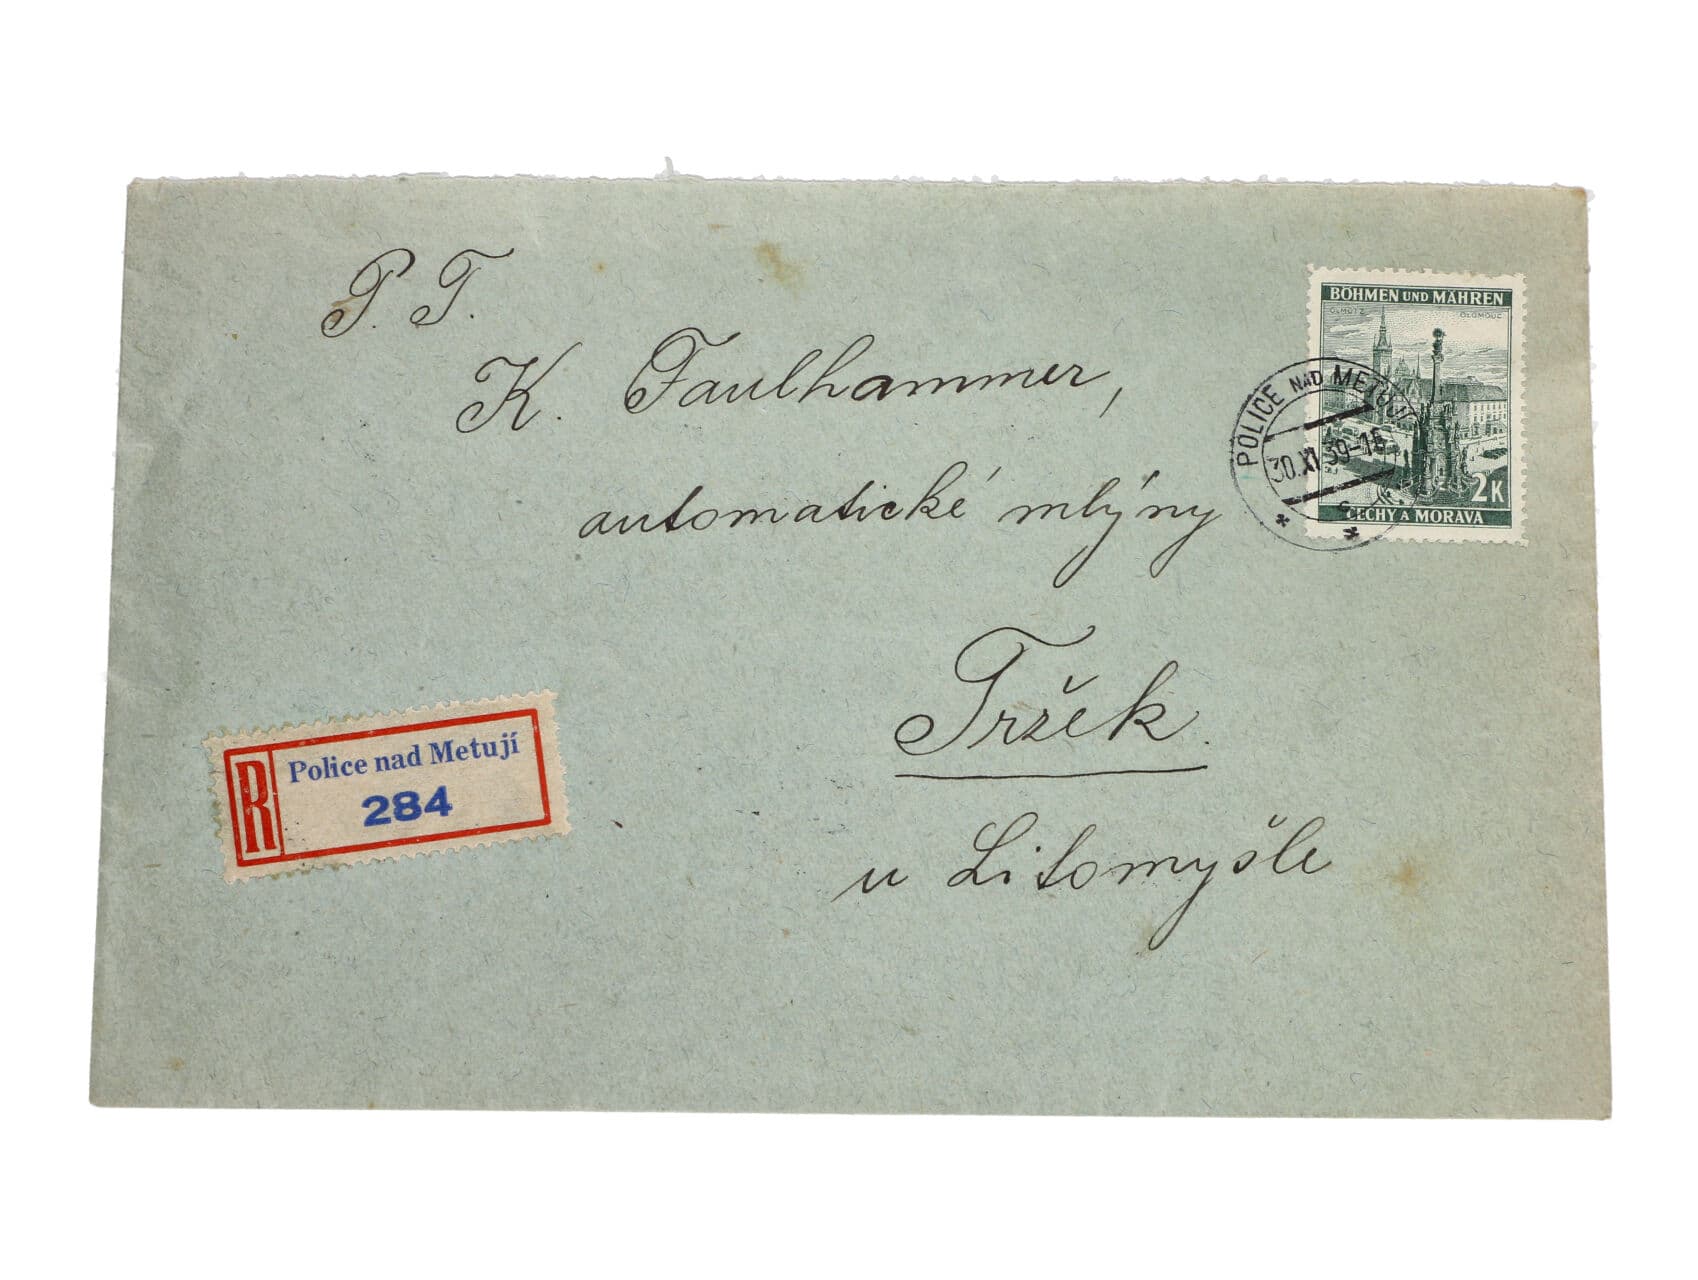 P. T.
K. Faulhammer,
automatické mlýny
Tržek.
u Litomyšle
BÖHMEN UND MÄHREN
OLMÜTZ OLOMOUC
2K
ČECHY A MORAVA
POLICE NAD METUJÍ
30.XI.39-16
* c *
R Police nad Metují
284